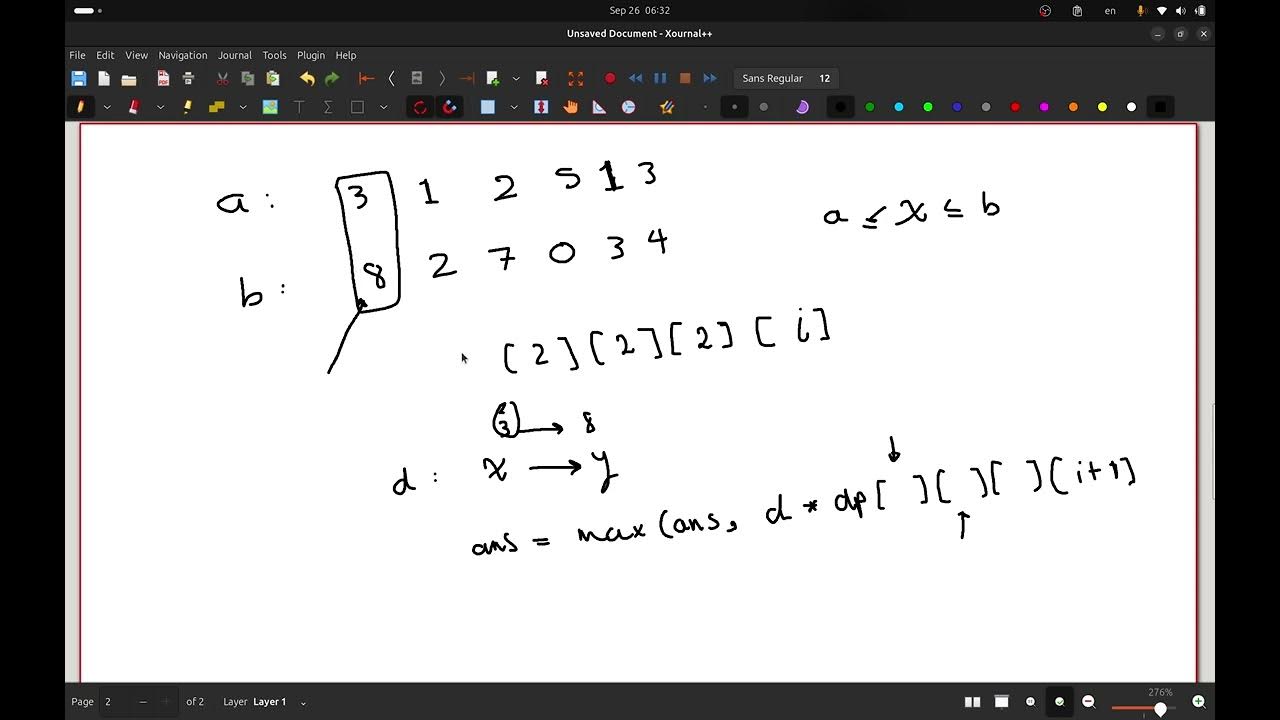 Sep 26 06:32
en
Unsaved Document - Xournal++
File Edit View Navigation Journal Tools Plugin Help
Sans Regular 12
a : 3 1 2 5 1 3
a ≤ x ≤ b
b : 8 2 7 0 3 4
[ 2 ] [ 2 ] [ 2 ] [ i ]
3 → 8
d : x → y
ans = max (ans, d * dp [ ] [ ] [ ] [ i+1 ]
Page 2 of 2 Layer Layer 1
276%